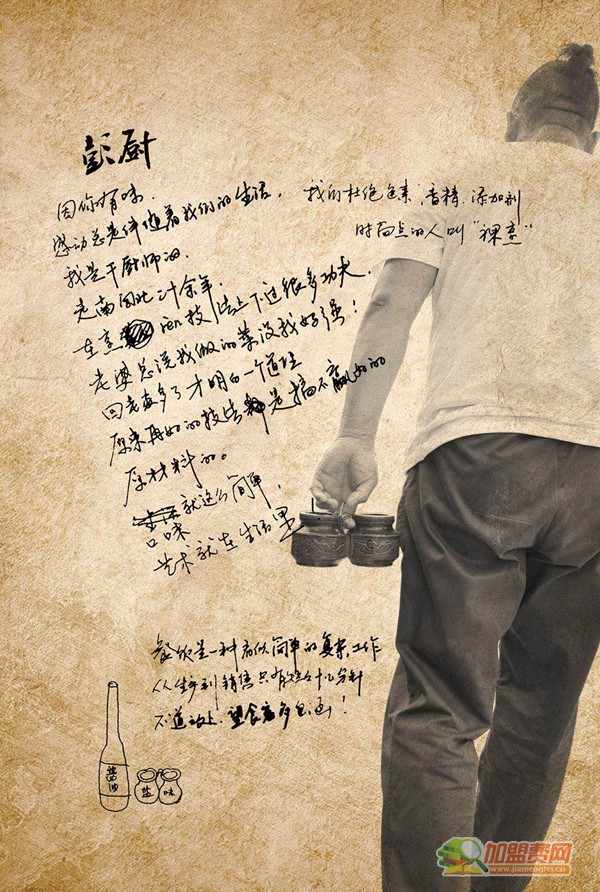 彭厨
因你有味.
感动总是伴随着我们的生活.
我是干厨师的.
走南闯北二十余年.
在烹 的技法上下过很多功夫.
老婆总说我做的菜没我妈强!
回老家多了才明白一个道理
原来再好的技法 是搞不赢好的
原材料的。
就这么简单,
口味
艺术就在生活里
我们杜绝色素,香精.添加剂
时 的人叫"裸烹"
餐饮是一种看似简单的复杂工作
从生产到销售只有短短十几分钟
不道之处.望食客多包涵!
酱油
盐
味
加盟费网
www.jiamengfei.cn